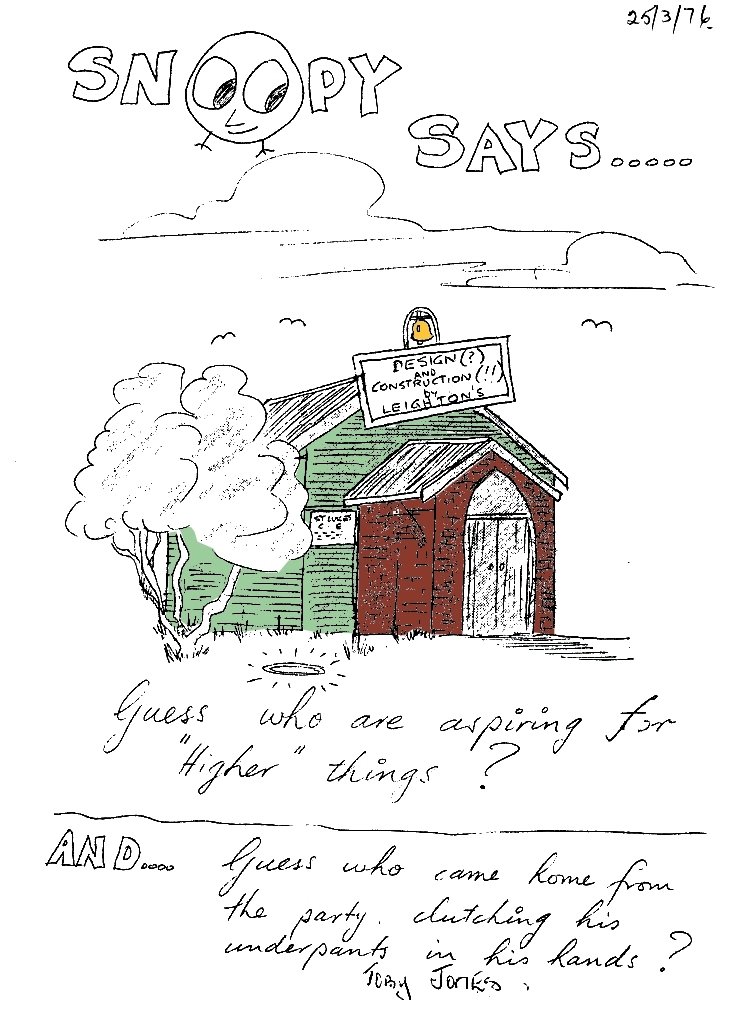 25/3/76.
SNOOPY
SAYS.....
DESIGN (?)
AND
CONSTRUCTION (!!)
by
LEIGHTON'S
ST LUKES
C E
Guess who are aspiring for
"Higher" things ?
AND....
Guess who came home from
the party. clutching his
underpants in his hands ?
TOBY JONES.